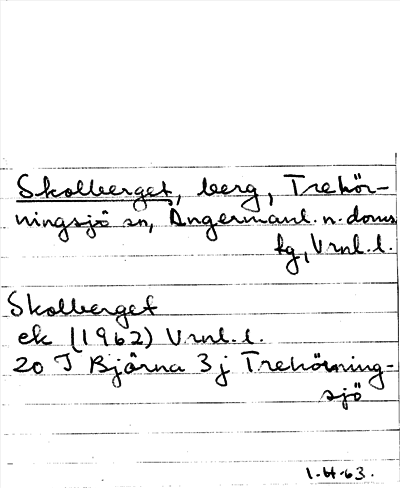 Skolberget, berg, Trehör-
ningsjö sn, Ångermanl. n. doms
fg, Vrnl. l.
Skolberget
ek (1962) Vrnl. l.
20 I Björna 3 j Trehörning-
sjö